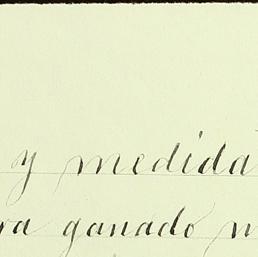 y medida
ganado